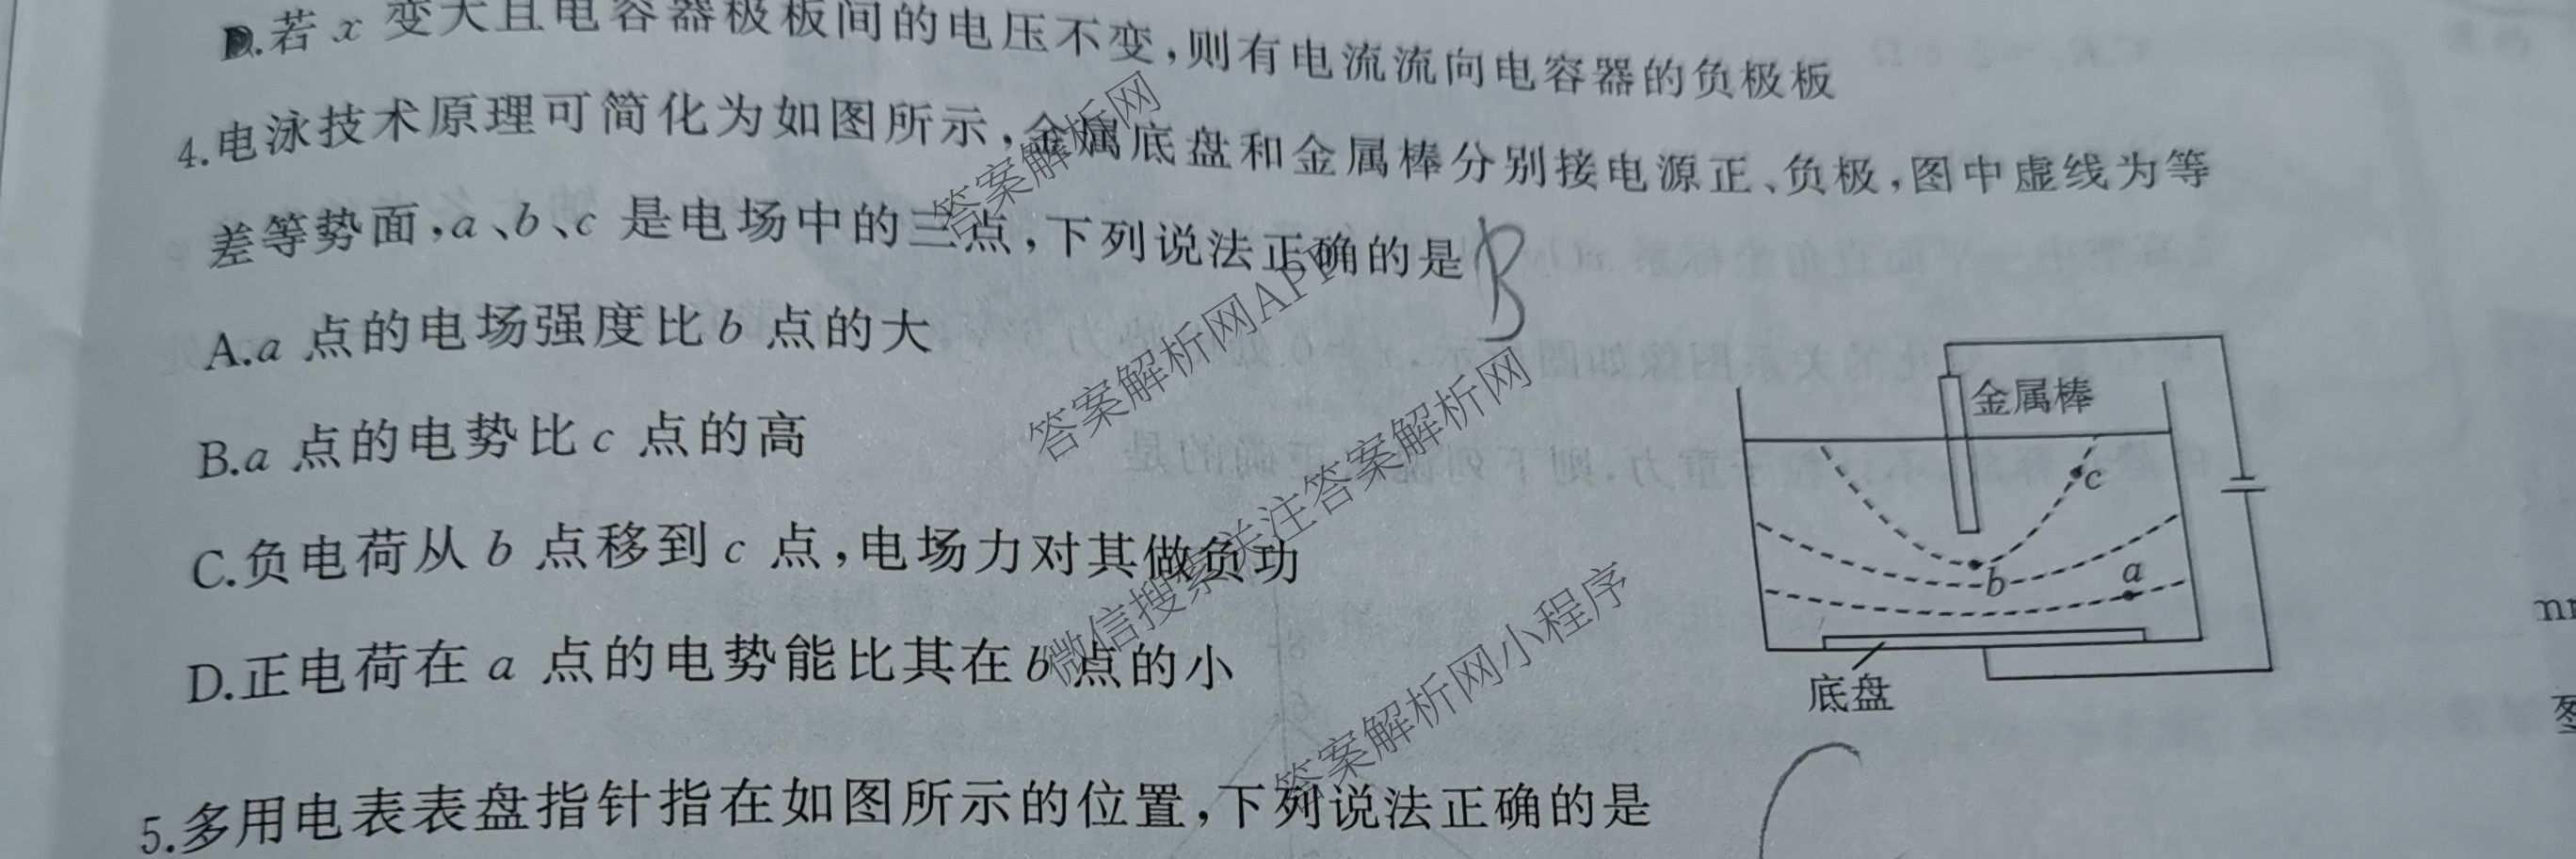 D.若 x 变大且电容器极板间的电压不变,则有电流流向电容器的负极板
4.电泳技术原理可简化为如图所示,金属底盘和金属棒分别接电源正、负极,图中虚线为等
差等势面,a、b、c 是电场中的三点,下列说法正确的是 B
A.a 点的电场强度比 b 点的大
B.a 点的电势比 c 点的高
C.负电荷从 b 点移到 c 点,电场力对其做负功
D.正电荷在 a 点的电势能比其在 b 点的小
金属棒
c
b
a
底盘
5.多用电表表盘指针指在如图所示的位置,下列说法正确的是
答案解析网
答案解析网APP
微信搜索关注答案解析网
答案解析网小程序